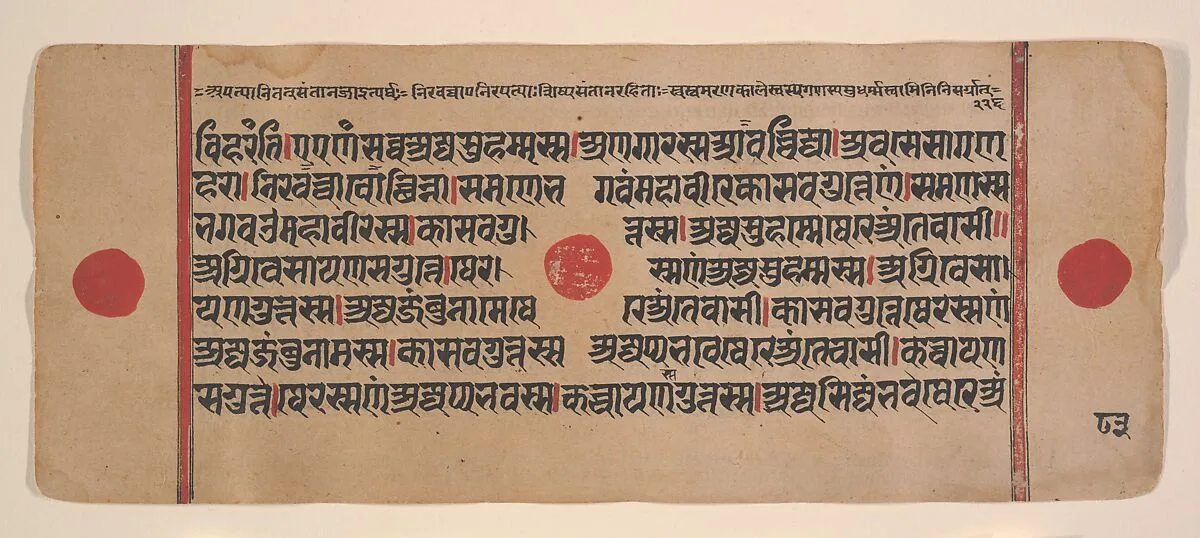 =अपत्यानितत्संतानजाइत्यर्थः= निरवच्चा निरपत्याः शिष्यसंतानरहिताः=स्वस्वमरणकाले
२२६
विहरंति।एएणंसव्वेअज्जसुहम्मस्स।अणगारस्सआवच्चिज्जा।अवसेसागण
हरा।निरवच्चावोच्छिन्ना।समणेभ गवंमहावीरेकासवगुत्तेणं।समणस्स
भगवओमहावीरस्स।कासवगु। त्तस्स।अज्जसुहम्मेथेरेअंतेवासी॥
अग्गिवेसायणसगुत्ते।थेर। स्सणंअज्जसुहम्मस्स।अग्गिवेसा।
यणगुत्तस्स।अज्जजंबुनामेथे रेअंतेवासी।कासवगुत्तेथेरस्सणं
अज्जजंबुनामस्स।कासवगुत्तस्स अज्जप्पभवेथेरेअंतेवासी।कच्चायण
सगुत्ते।थेरस्सणंअज्जप्पभवस्स।कच्चायणस्सगुत्तस्स।अज्जसिज्जंभवेथेरेअं
८३